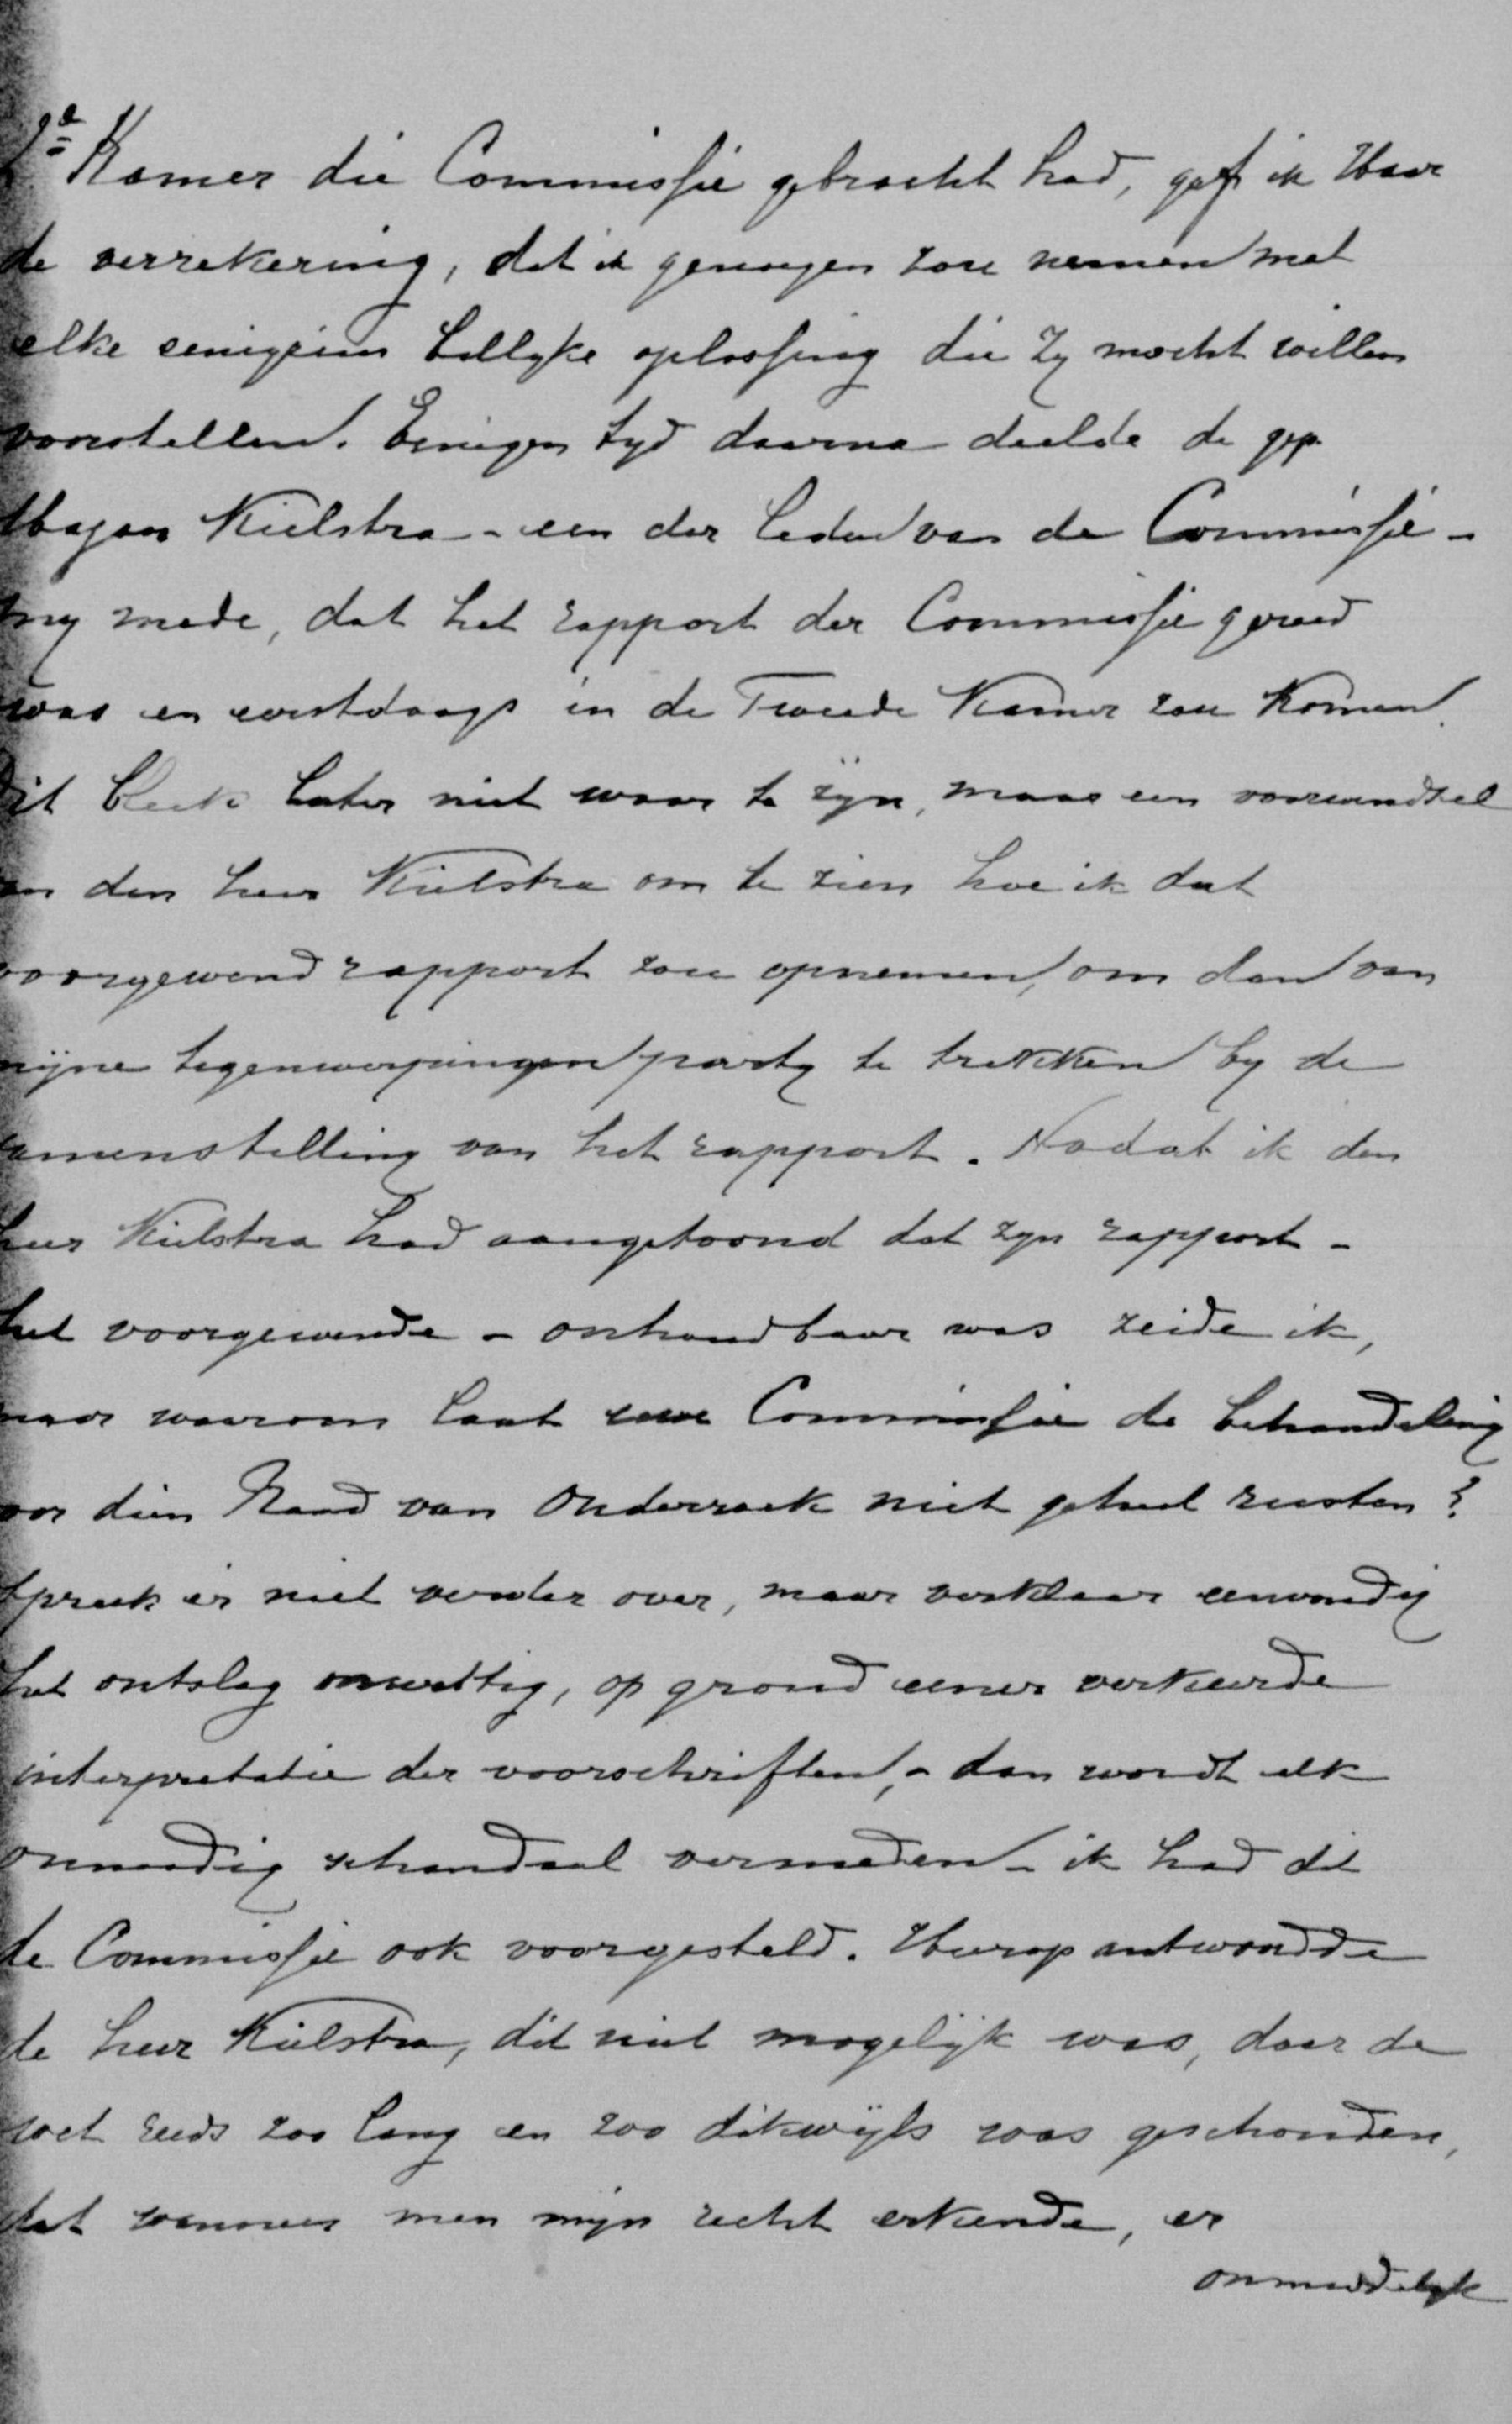 2e Kamer die Commissie gebracht had, gaf ik Haar
de verzekering, dat ik genoegen zou nemen met
elke eenigzins billyke oplossing die Zy mocht willen
voorstellen. Eenigen tyd daarna deelde de gep.
Majoor Kielstra - een der leden van de Commissie -
my mede, dat het rapport der Commissie gereed
was en eerstdaags in de Tweede Kamer zou komen.
Dit bleek later niet waar te zijn, maar een voorwendsel
van den heer Kielstra om te zien hoe ik dat
voorgewend rapport zou opnemen, om dan van
mijne tegenwerpingen party te trekken by de
samenstelling van het rapport. Nadat ik den
heer Kielstra had aangetoond dat zyn rapport -
het voorgewende - onhoudbaar was zeide ik,
maar waarom laat uwe Commissie de behandeling
voor dien Raad van Onderzoek niet geheel rusten?
Spreek er niet verder over, maar verklaar eenvoudig
het ontslag onwettig, op grond eener verkeerde
interpretatie der voorschriften, - dan wordt elk
onnoodig schandaal vermeden - ik had dit
de Commissie ook voorgesteld. Hierop antwoordde
de heer Kielstra, dit niet mogelijk was, daar de
wet reeds zoo lang en zoo dikwijls was geschonden,
dat wanneer men mijn recht erkende, er
onmiddelyk